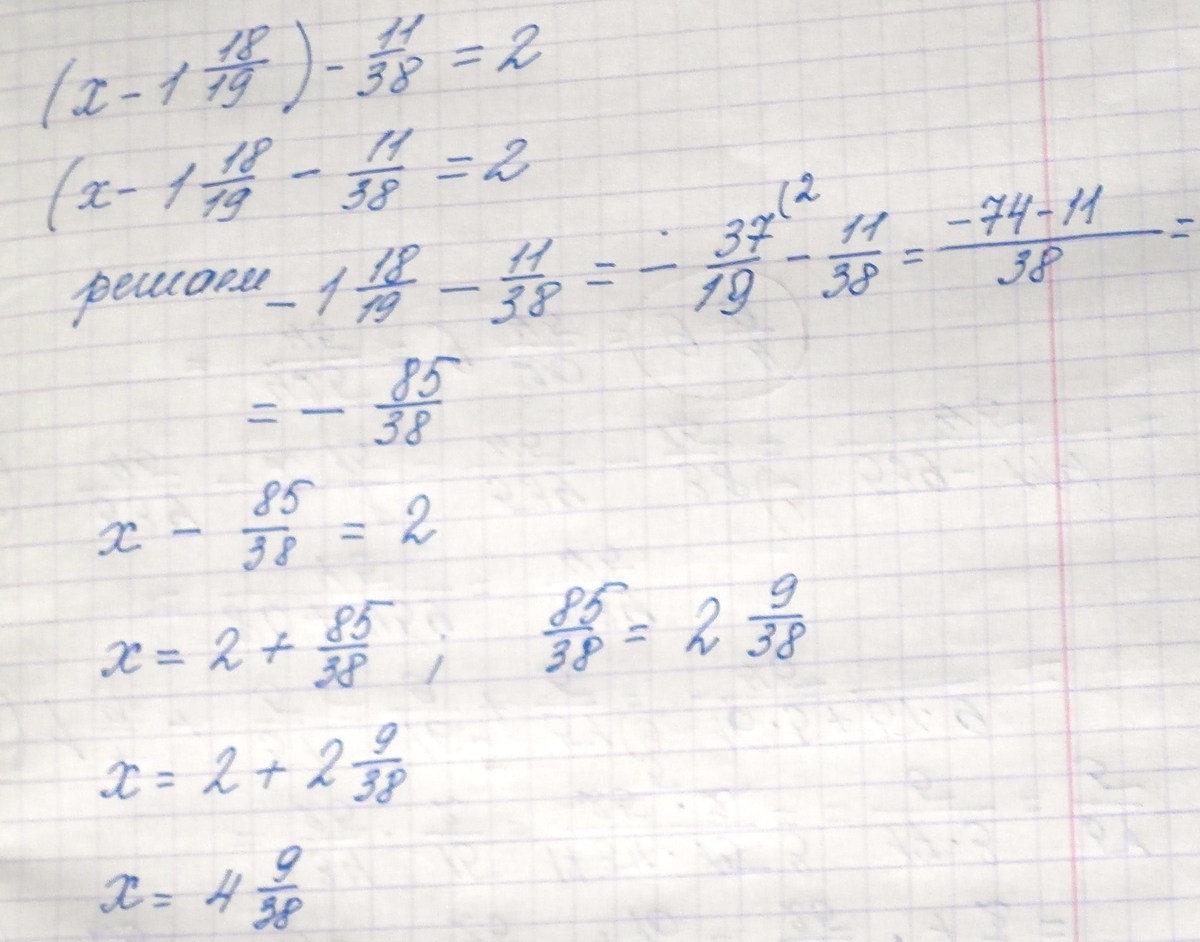 (x - 1 18/19) - 11/38 = 2
(x - 1 18/19 - 11/38 = 2
решаем - 1 18/19 - 11/38 = - 37/19 (2 - 11/38 = -74-11/38 =
= - 85/38
x - 85/38 = 2
x = 2 + 85/38 ; 85/38 = 2 9/38
x = 2 + 2 9/38
x = 4 9/38